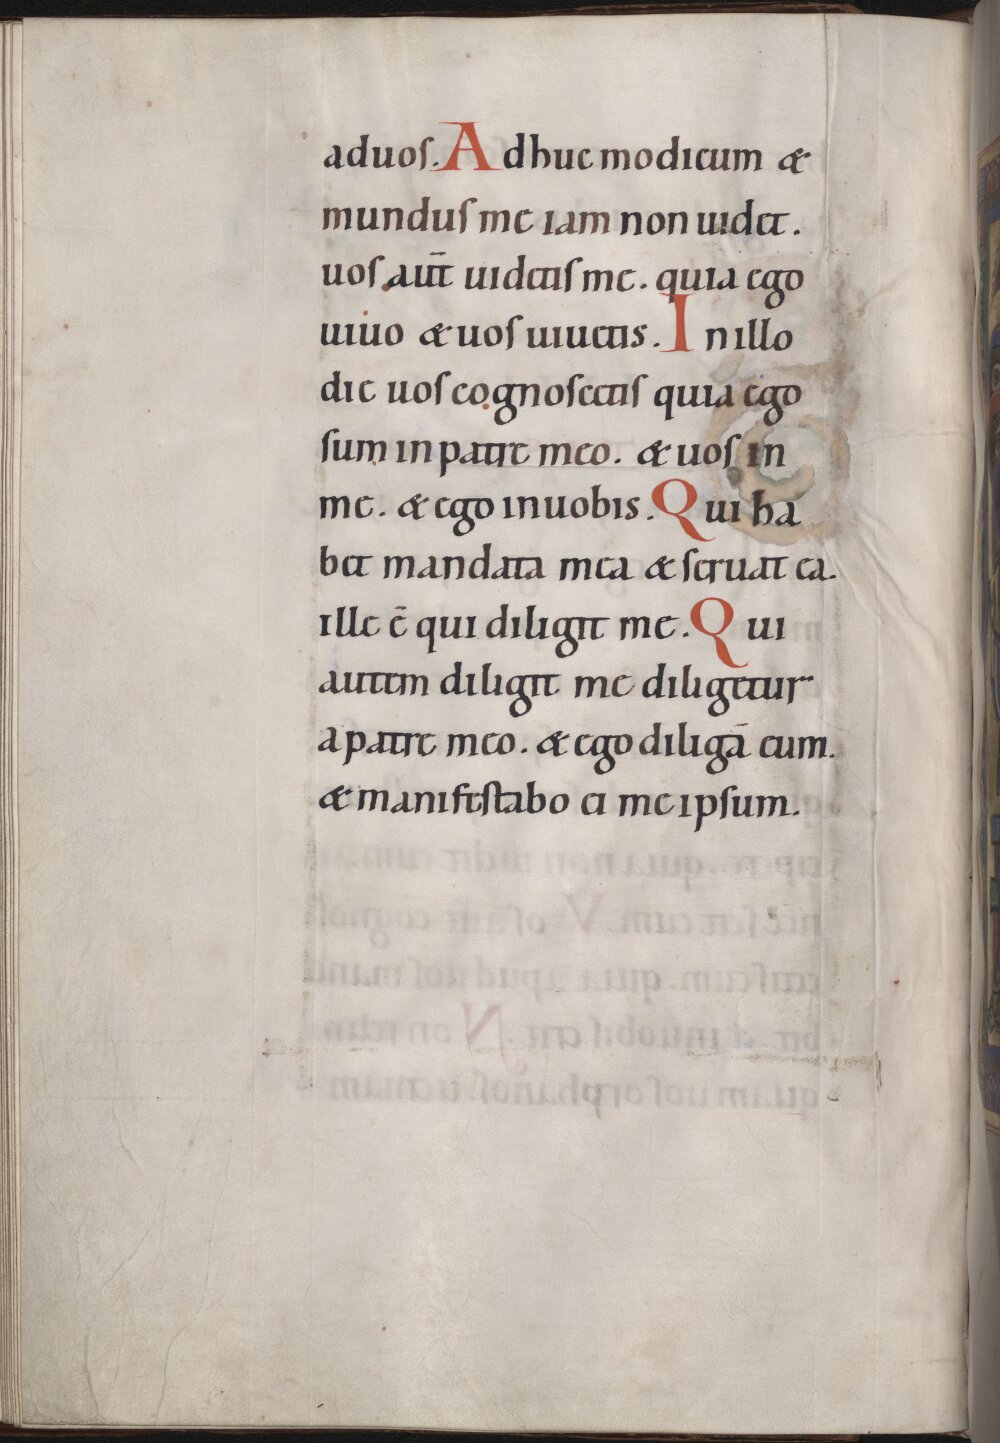 aduoſ. Adhuc modicum &
munduſ me iam non uidet.
uoſ aut̄ uidetiſ me. quia ego
uiuo & uoſ uiuetis. In illo
die uoſ cognoſcetiſ quia ego
ſum in patre meo. & uoſ in
me. & ego inuobis. Qui ha
bet mandata mea & ſeruat ea.
ille ē qui diligit me. Qui
autem diligit me diligetur
a patre meo. & ego diligā eum.
& manifeſtabo ei me ipſum.